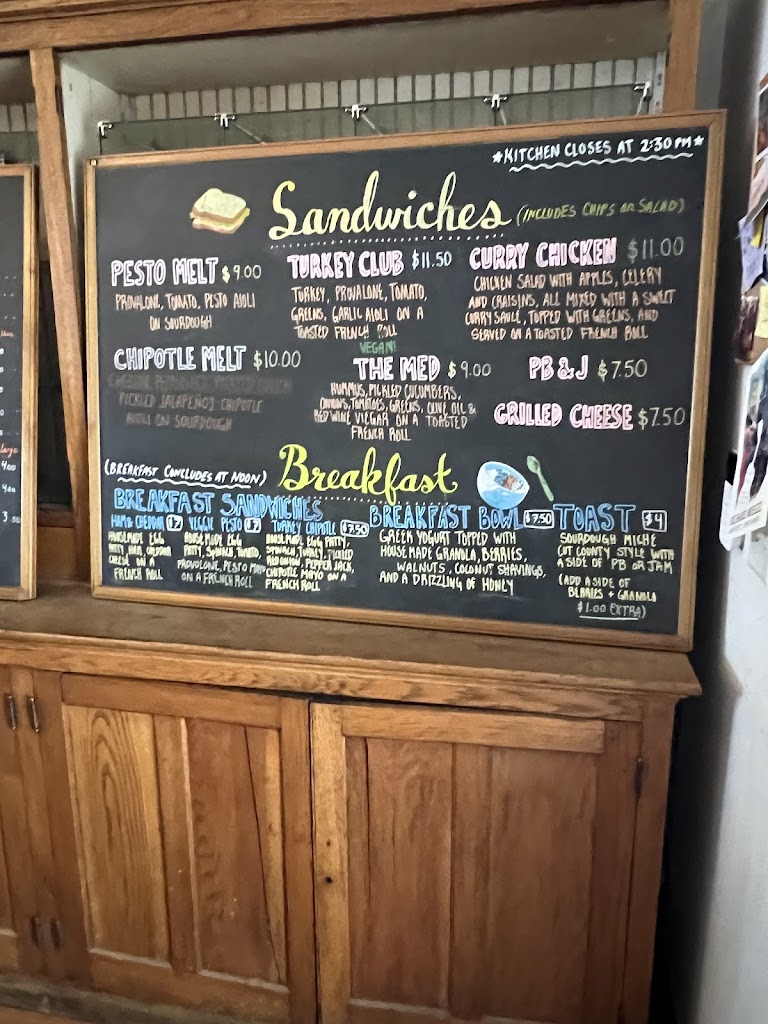 *KITCHEN CLOSES AT 2:30 PM*
Sandwiches (INCLUDES CHIPS OR SALAD)
PESTO MELT $9.00
PROVALONE, TOMATO, PESTO AIOLI
ON SOURDOUGH
TURKEY CLUB $11.50
TURKEY, PROVALONE, TOMATO,
GREENS, GARLIC AIOLI ON A
TOASTED FRENCH ROLL
CURRY CHICKEN $11.00
CHICKEN SALAD WITH APPLES, CELERY
AND CRAISINS, ALL MIXED WITH A SWEET
CURRY SAUCE, TOPPED WITH GREENS, AND
SERVED ON A TOASTED FRENCH ROLL
CHIPOTLE MELT $10.00
PICKLED JALAPEÑOS CHIPOTLE
AIOLI ON SOURDOUGH
VEGAN!
THE MED $9.00
HUMMUS, PICKLED CUCUMBERS,
ONIONS, TOMATOES, GREENS, OLIVE OIL &
RED WINE VIEGAR ON A TOASTED
FRENCH ROLL
PB & J $7.50
GRILLED CHEESE $7.50
(BREAKFAST CONCLUDES AT NOON) Breakfast
BREAKFAST SANDWICHES
HAM & CHEDDAR $7
HOUSEMADE EGG
PATTY, HAM, CHEDDAR
CHEESE ON A
FRENCH ROLL
VEGGIE PESTO $7
HOUSEMADE EGG
PATTY, SPINACH, TOMATO,
PROVOLONE, PESTO MAYO
ON A FRENCH ROLL
TURKEY CHIPOTLE $7.50
HOUSEMADE EGG PATTY,
SPINACH, TURKEY, PICKLED
RED ONION, PEPPER JACK,
CHIPOTLE MAYO ON A
FRENCH ROLL
BREAKFAST BOWL $7.50
GREEK YOGURT TOPPED WITH
HOUSEMADE GRANOLA, BERRIES,
WALNUTS, COCONUT SHAVINGS,
AND A DRIZZLING OF HONEY
TOAST $4
SOURDOUGH MICHE
CUT COUNTY STYLE WITH
A SIDE OF PB OR JAM
(ADD A SIDE OF
BERRIES + GRANOLA
$1.00 EXTRA)